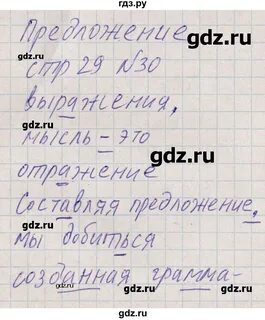 Предложение
gdz.ru
стр 29 №30
выражения,
gdz.ru
мысль – это
отражение
gdz.ru
Составляя предложение,
мы добиться
gdz.ru
созданная грамма-